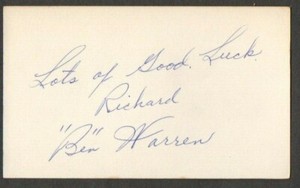 Lots of Good. Luck
Richard
"Ben" Warren